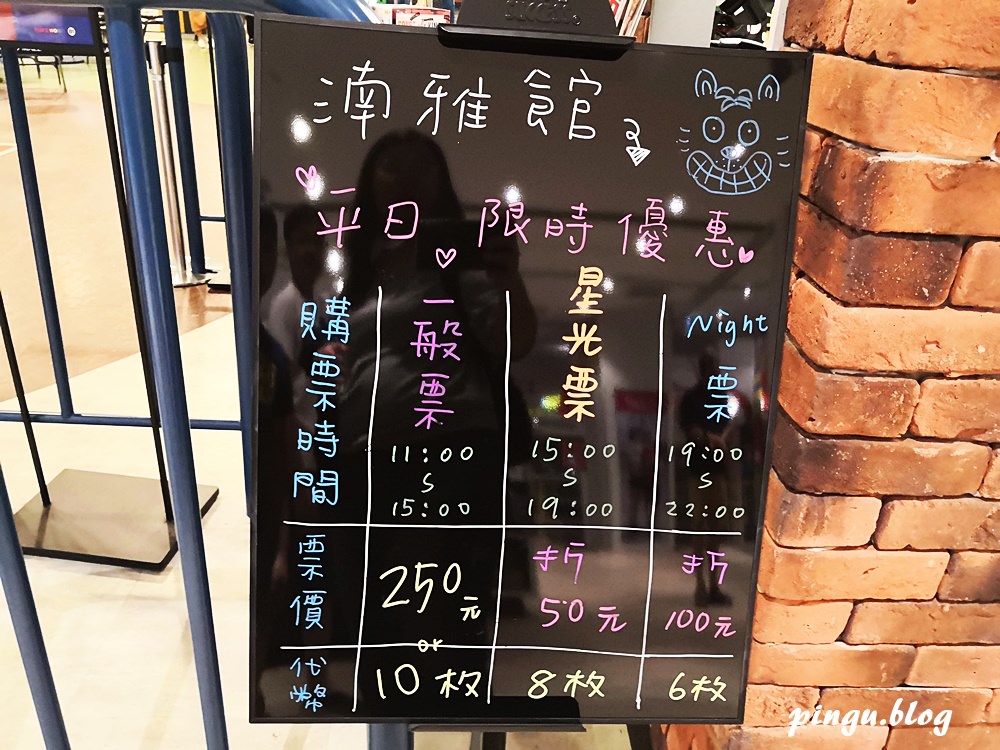 湳雅館
平日 限時優惠
購票時間
一般票
11:00
S
15:00
星光票
15:00
S
19:00
Night
票
19:00
S
22:00
票價
250元
折
50元
折
100元
or
代幣
10枚
8枚
6枚
pingu.blog